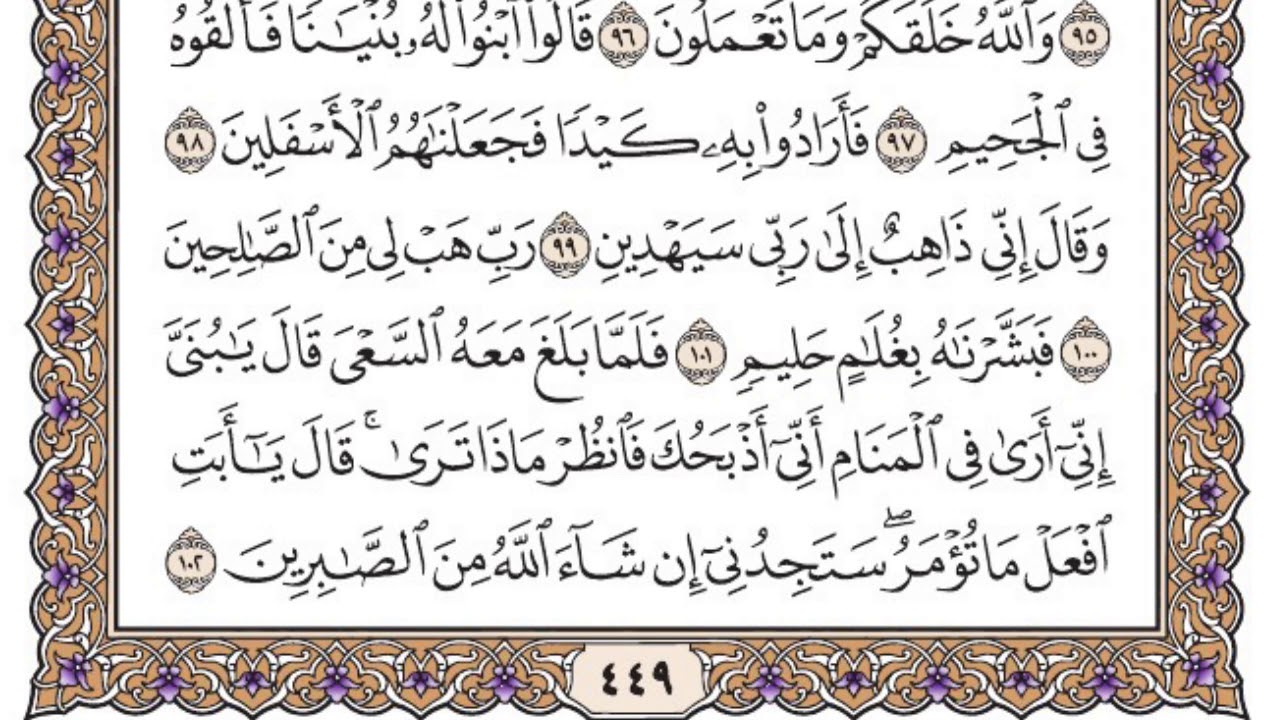 ٩٥ وَٱللَّهُ خَلَقَكُمْ وَمَا تَعْمَلُونَ ٩٦ قَالُوا۟ ٱبْنُوا۟ لَهُۥ بُنْيَـٰنًا فَأَلْقُوهُ
فِى ٱلْجَحِيمِ ٩٧ فَأَرَادُوا۟ بِهِۦ كَيْدًا فَجَعَلْنَـٰهُمُ ٱلْأَسْفَلِينَ ٩٨
وَقَالَ إِنِّى ذَاهِبٌ إِلَىٰ رَبِّى سَيَهْدِينِ ٩٩ رَبِّ هَبْ لِى مِنَ ٱلصَّـٰلِحِينَ
١٠٠ فَبَشَّرْنَـٰهُ بِغُلَـٰمٍ حَلِيمٍ ١٠١ فَلَمَّا بَلَغَ مَعَهُ ٱلسَّعْىَ قَالَ يَـٰبُنَىَّ
إِنِّىٓ أَرَىٰ فِى ٱلْمَنَامِ أَنِّىٓ أَذْبَحُكَ فَٱنظُرْ مَاذَا تَرَىٰ ۚ قَالَ يَـٰٓأَبَتِ
ٱفْعَلْ مَا تُؤْمَرُ ۖ سَتَجِدُنِىٓ إِن شَآءَ ٱللَّهُ مِنَ ٱلصَّـٰبِرِينَ ١٠٢
٤٤٩